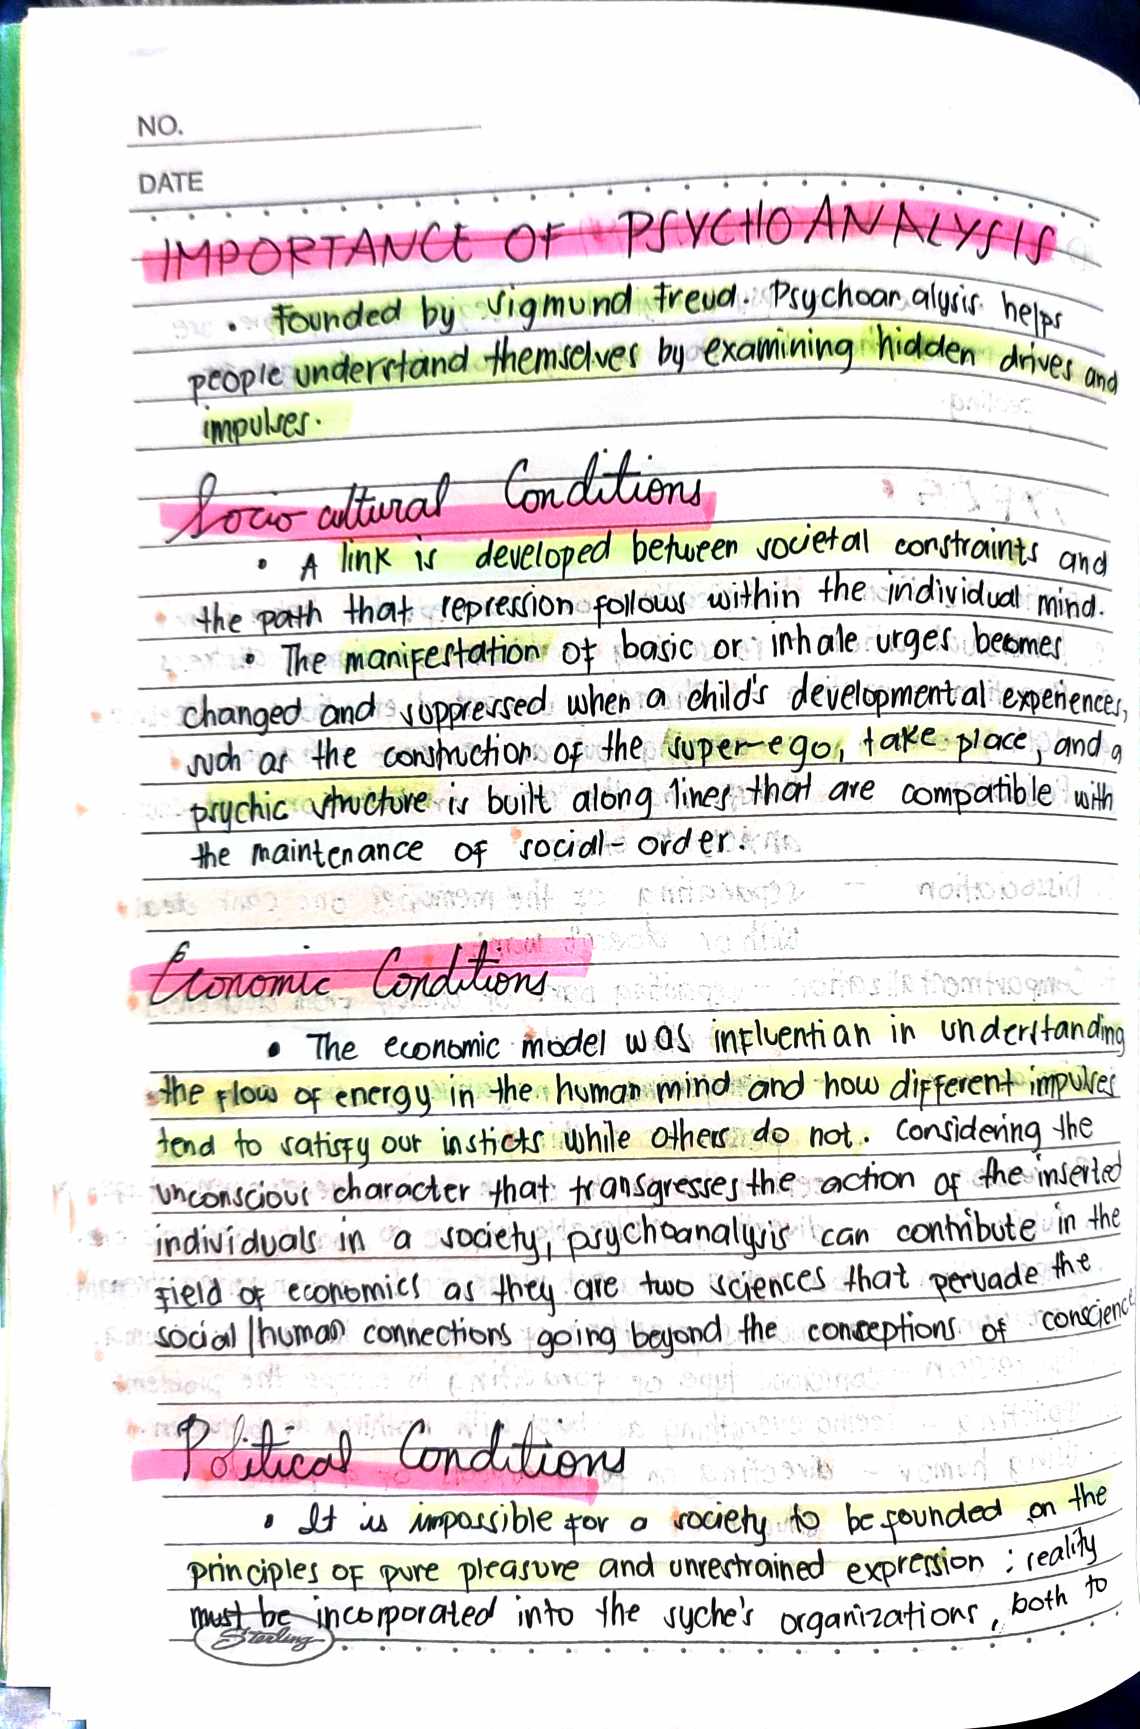 NO.
DATE
IMPORTANCE OF PSYCHOANALYSIS
• Founded by Sigmund Freud. Psychoanalysis helps
people understand themselves by examining hidden drives and
impulses.
Socio cultural Conditions
• A link is developed between societal constraints and
the path that repression follows within the individual mind.
• The manifestation of basic or inhale urges becomes
changed and suppressed when a child's developmental experiences,
such as the construction of the super-ego, take place, and a
psychic structure is built along lines that are compatible with
the maintenance of social-order.
Economic Conditions
• The economic model was influentian in understanding
the flow of energy in the human mind and how different impulses
tend to satisfy our insticts while others do not. Considering the
unconscious character that transgresses the action of the inserted
individuals in a society, psychoanalysis can contribute in the
field of economics as they are two sciences that pervade the
social/human connections going beyond the conceptions of conscience
Political Conditions
• It is impossible for a society to be founded on the
principles of pure pleasure and unrestrained expression ; reality
must be incorporated into the syche's organizations, both to
Sterling